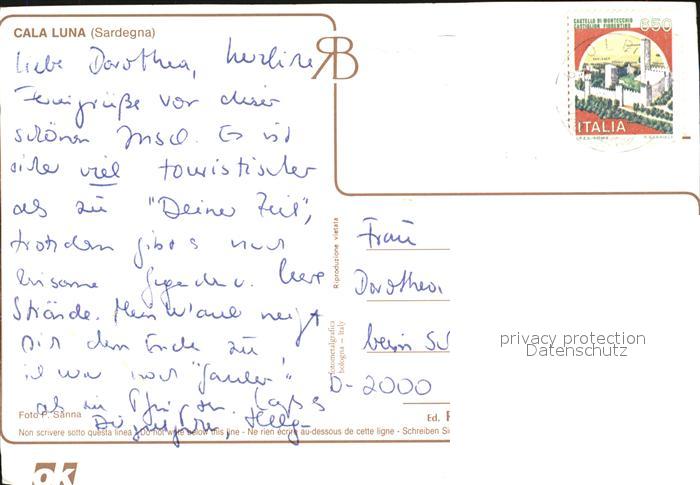 CALA LUNA (Sardegna)
liebe Dorothea, herzliche
Feriengrüße von dieser
schönen Insel. Es ist
sicher viel touristischer
als zu "Deiner Zeit",
trotzdem gibt es noch
einsame Gegenden u. leere
Strände. Mein Urlaub neigt
sich dem Ende zu
ich war noch
als in
Foto P. Sanna
Non scrivere sotto questa linea - Do not write below this line - Ne rien écrire au-dessous de cette ligne - Schreiben Si
ok
RB
CASTELLO DI MONTECCHIO
CASTIGLION FIORENTINO
650
ITALIA
I.P.Z.S. ROMA
Riproduzione vietata
fotometalgrafica
bologna - Italy
Frau
Dorothea
beim
D-2000
Ed.
privacy protection
Datenschutz